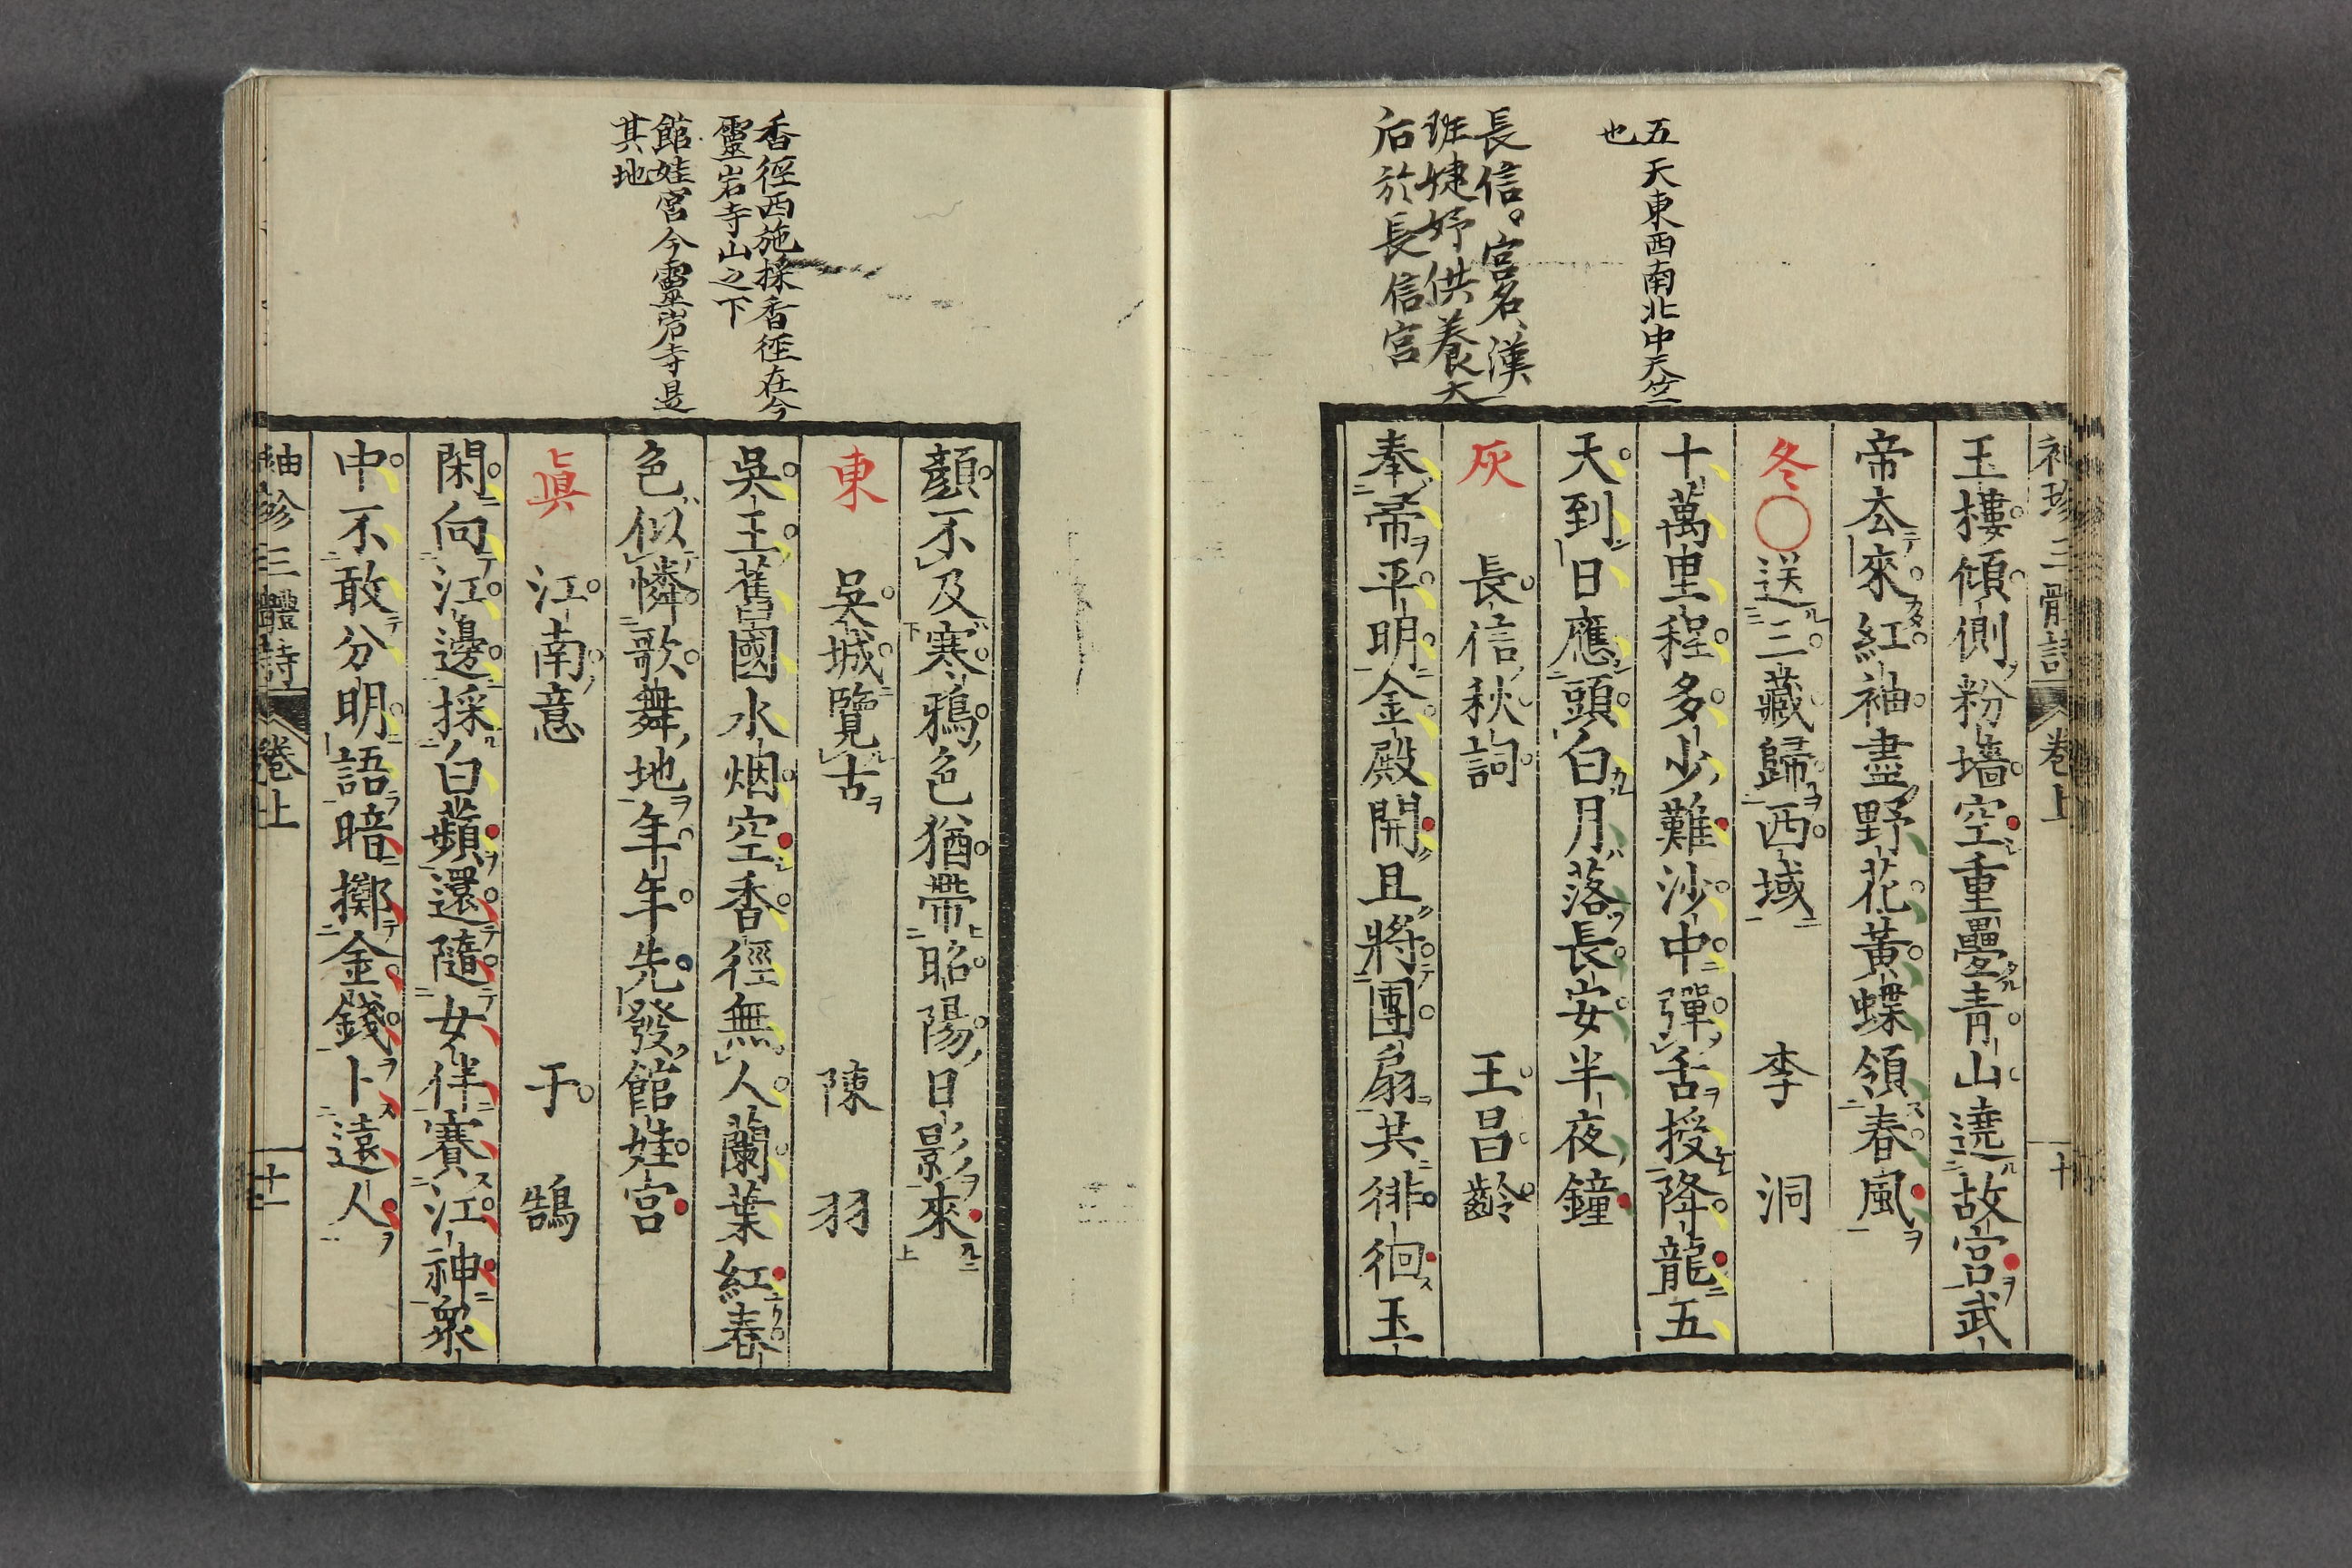 五天東西南北中天竺
也
長信宮名漢
班婕妤供養太
后於長信宮
袖珍三體詩 卷上 十
玉樓傾側粉墻空重疊青山遶故宮武
帝去來紅袖盡野花黃蝶領春風
冬 送三藏歸西域 李洞
十萬里程多少難沙中彈舌授降龍五
天到日應頭白月落長安半夜鐘
灰 長信秋詞 王昌齡
奉帚平明金殿開且將團扇共徘徊玉
香徑西施採香徑在今
靈岩寺山之下
館娃宮今靈岩寺是
其地
顏不及寒鴉色猶帶昭陽日影來
東 吳城覽古 陳羽
吳王舊國水烟空香徑無人蘭葉紅春
色似憐歌舞地年年先發館娃宮
眞 江南意 于鵠
閑向江邊採白蘋還隨女伴賽江神衆
中不敢分明語暗擲金錢卜遠人
袖珍三體詩 卷上 十一